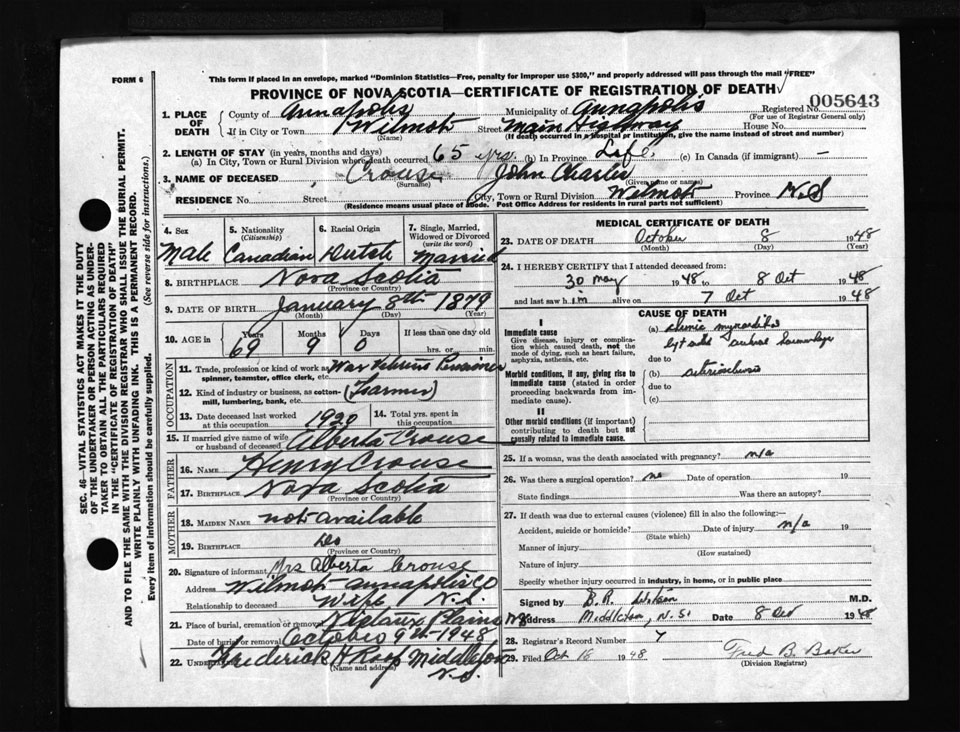 FORM 6
This form if placed in an envelope, marked "Dominion Statistics—Free, penalty for improper use $300," and properly addressed will pass through the mail "FREE"
PROVINCE OF NOVA SCOTIA—CERTIFICATE OF REGISTRATION OF DEATH
Registered No. 005643
(For use of Registrar General only)
1. PLACE OF DEATH
County of Annapolis Municipality of Annapolis
If in City or Town Wilmot Street Main Highway House No.
(Name) (If death occurred in a hospital or institution, give the name instead of street and number)
2. LENGTH OF STAY (in years, months and days)
(a) In City, Town or Rural Division where death occurred 65 yrs. (b) In Province Life. (c) In Canada (if immigrant) —
3. NAME OF DECEASED Crouse John Charles
(Surname) (Given name or names)
RESIDENCE No. Street City, Town or Rural Division Wilmot Province N.S
(Residence means usual place of abode. Post Office Address for residents in rural parts not sufficient)
4. Sex Male
5. Nationality (Citizenship) Canadian
6. Racial Origin Dutch
7. Single, Married, Widowed or Divorced (write the word) Married
8. BIRTHPLACE Nova Scotia
(Province or Country)
9. DATE OF BIRTH January 8th 1879
(Month) (Day) (Year)
10. AGE in Years Months Days If less than one day old
69 9 0 hrs. or min.
OCCUPATION
11. Trade, profession or kind of work as spinner, teamster, office clerk, etc. War Veterans Pensioner
12. Kind of industry or business, as cotton-mill, lumbering, bank, etc. (Farmer)
13. Date deceased last worked at this occupation 1930
14. Total yrs. spent in this occupation
15. If married give name of wife or husband of deceased Alberta Crouse
FATHER
16. NAME Henry Crouse
17. BIRTHPLACE Nova Scotia
(Province or Country)
MOTHER
18. MAIDEN NAME not available
19. BIRTHPLACE Do
(Province or Country)
20. Signature of informant Mrs Alberta Crouse
Address Wilmot Annapolis Co
Relationship to deceased Wife N.S.
21. Place of burial, cremation or removal Plains N.S
Date of burial or removal October 9th 1948
22. UNDERTAKER Frederick A Roop Middleton
(Name and address) N.S.
MEDICAL CERTIFICATE OF DEATH
23. DATE OF DEATH October 8 1948
(Month) (Day) (Year)
24. I HEREBY CERTIFY that I attended deceased from:
30 May 1948 to 8 Oct 1948
and last saw him alive on 7 Oct 1948
CAUSE OF DEATH
I
Immediate cause
Give disease, injury or complication which caused death, not the mode of dying, such as heart failure, asphyxia, asthenia, etc.
(a) chronic myocarditis
cerebral haemorrhage
due to
Morbid conditions, if any, giving rise to immediate cause (stated in order proceeding backwards from immediate cause).
(b) arteriosclerosis
due to
(c)
II
Other morbid conditions (if important) contributing to death but not causally related to immediate cause.
25. If a woman, was the death associated with pregnancy? n/a
26. Was there a surgical operation? no Date of operation 19
State findings Was there an autopsy?
27. If death was due to external causes (violence) fill in also the following:—
Accident, suicide or homicide? Date of injury n/a 19
(State which)
Manner of injury
(How sustained)
Nature of injury
Specify whether injury occurred in industry, in home, or in public place
Signed by B.R. M.D.
Address Middleton, N.S. Date 1948
28. Registrar's Record Number 7
29. Filed Oct 16 1948 Fred B. Baker
(Division Registrar)
SEC. 46—VITAL STATISTICS ACT MAKES IT THE DUTY
OF THE UNDERTAKER OR PERSON ACTING AS UNDER-
TAKER TO OBTAIN ALL THE PARTICULARS REQUIRED
IN THE "CERTIFICATE OF REGISTRATION OF DEATH"
AND TO FILE THE SAME WITH THE DIVISION REGISTRAR WHO SHALL ISSUE THE BURIAL PERMIT.
WRITE PLAINLY WITH UNFADING INK. THIS IS A PERMANENT RECORD.
Every item of information should be carefully supplied. (See reverse side for instructions.)